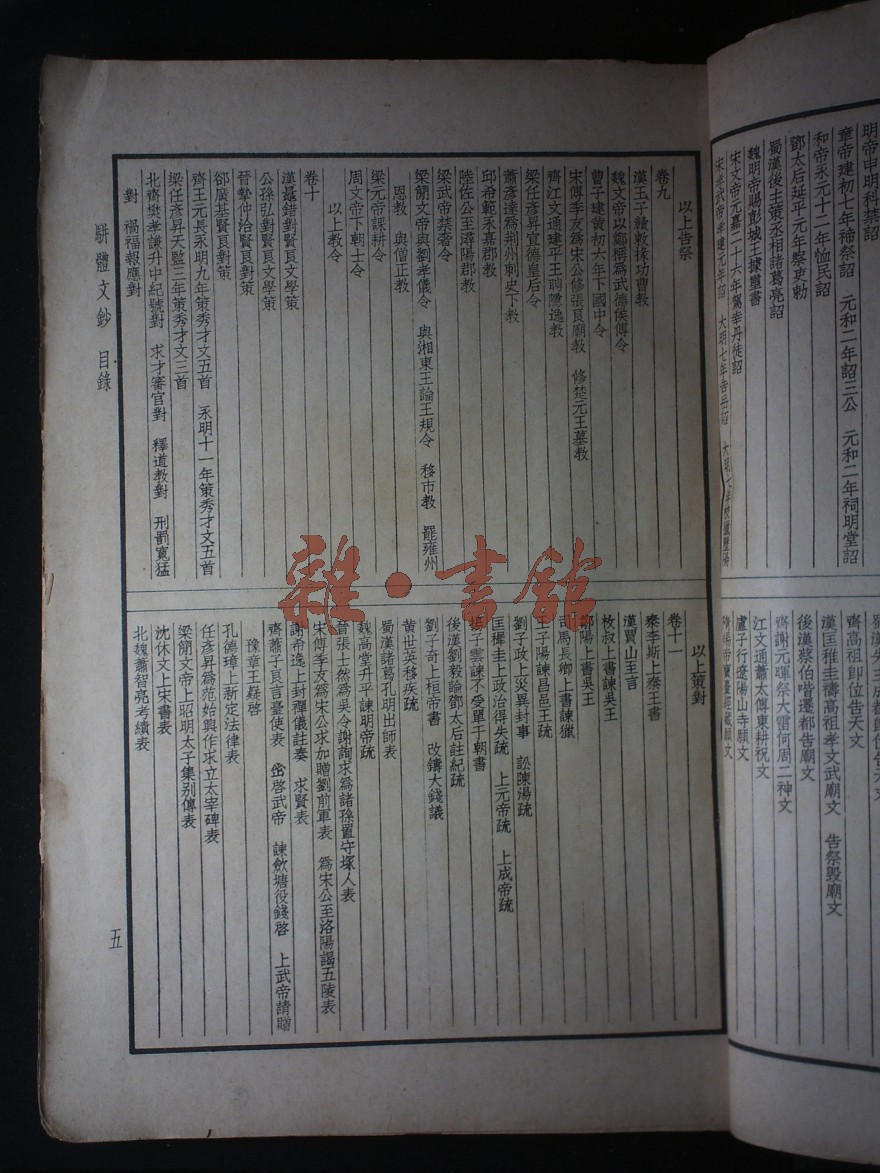 明帝申明科禁詔
章帝建初七年禘祭詔　元和二年詔三公　元和二年祠明堂詔
和帝永元十二年恤民詔
鄧太后延平元年察吏勅
蜀漢後主策丞相諸葛亮詔
魏明帝賜彭城王據璽書
宋文帝元嘉二十六年駕幸丹徒詔
齊高祖即位告天文
漢匡稚圭禱高祖孝文武廟文　告祭毀廟文
後漢蔡伯喈遷都告廟文
齊謝元暉祭大雷何周二神文
江文通蕭太傅東耕祝文
盧子行遼陽山寺願文
以上告祭
卷九
漢王子贛敕掾功曹教
魏文帝以鄭稱爲武德侯傅令
曹子建黃初六年下國中令
宋傅季友爲宋公修張良廟教　修楚元王墓教
齊江文通建平王聘隱逸教
梁任彥昇宣德皇后令
蕭彥達爲荆州刺史下教
邱希範永嘉郡教
陸佐公至潯陽郡教
梁武帝禁奢令
梁簡文帝與劉孝儀令　與湘東王論王規令　移市教　罷雍州
恩教　與僧正教
梁元帝課耕令
周文帝下朝士令
以上教令
卷十
漢鼂錯對賢良文學策
公孫弘對賢良文學策
晉摰仲治賢良對策
郤廣基賢良對策
齊王元長永明九年策秀才文五首　永明十一年策秀才文五首
梁任彥昇天監三年策秀才文三首
北齊樊孝謙升中紀號對　求才審官對　釋道教對　刑罰寬猛
對　禍福報應對
以上策對
卷十一
秦李斯上秦王書
漢賈山至言
枚叔上書諫吳王
鄒陽上書吳王
司馬長卿上書諫獵
王子陽諫昌邑王疏
劉子政上災異封事　訟陳湯疏
匡稚圭上政治得失疏　上元帝疏　上成帝疏
揚子雲諫不受單于朝書
後漢劉毅論鄧太后註紀疏
劉子奇上桓帝書　改鑄大錢議
黃世英移疾疏
蜀漢諸葛孔明出師表
魏高堂升平諫明帝疏
晉張士然爲吳令謝詢求爲諸孫置守塚人表
宋傅季友爲宋公求加贈劉前軍表　爲宋公至洛陽謁五陵表
謝希逸上封禪儀註奏　求賢表
齊蕭子良言臺使表　密啓武帝　諫斂塘役錢啓　上武帝請贈
豫章王嶷啓
孔德璋上新定法律表
任彥昇爲范始興作求立太宰碑表
梁簡文帝上昭明太子集別傳表
沈休文上宋書表
北魏蕭智亮考績表
駢體文鈔　目錄
五
雜·書館